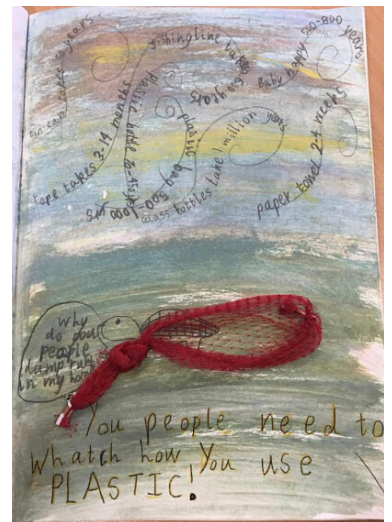 tin can takes years
rope takes 3-14 months
plastic bottle
fishing line takes
600 years
plastic bag 500-1000 yrs
Glass bottles take 1 million years
Baby nappy 500-800 years
paper towel 2-4 weeks
Why
do you
people
dump
in my
You people need to
Whatch how You use
PLASTIC!